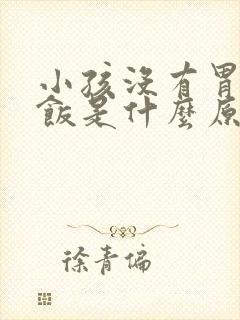 小孩没有胃
飯是什麼原
徐青偏